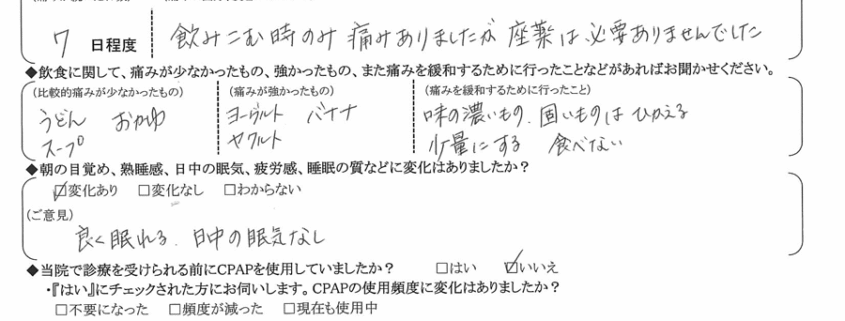 7 日程度 飲みこむ時のみ 痛みありましたが 座薬は必要ありませんでした
◆飲食に関して、痛みが少なかったもの、強かったもの、また痛みを緩和するために行ったことなどがあればお聞かせください。
(比較的痛みが少なかったもの) (痛みが強かったもの) (痛みを緩和するために行ったこと)
うどん おかゆ ヨーグルト バナナ 味の濃いもの、固いものは ひかえる
スープ ヤクルト 少量にする 食べない
◆朝の目覚め、熟睡感、日中の眠気、疲労感、睡眠の質などに変化はありましたか?
☑変化あり □変化なし □わからない
(ご意見)
良く眠れる、日中の眠気なし
◆当院で診療を受けられる前にCPAPを使用していましたか? □はい ☑いいえ
・『はい』にチェックされた方にお伺いします。CPAPの使用頻度に変化はありましたか?
□不要になった □頻度が減った □現在も使用中